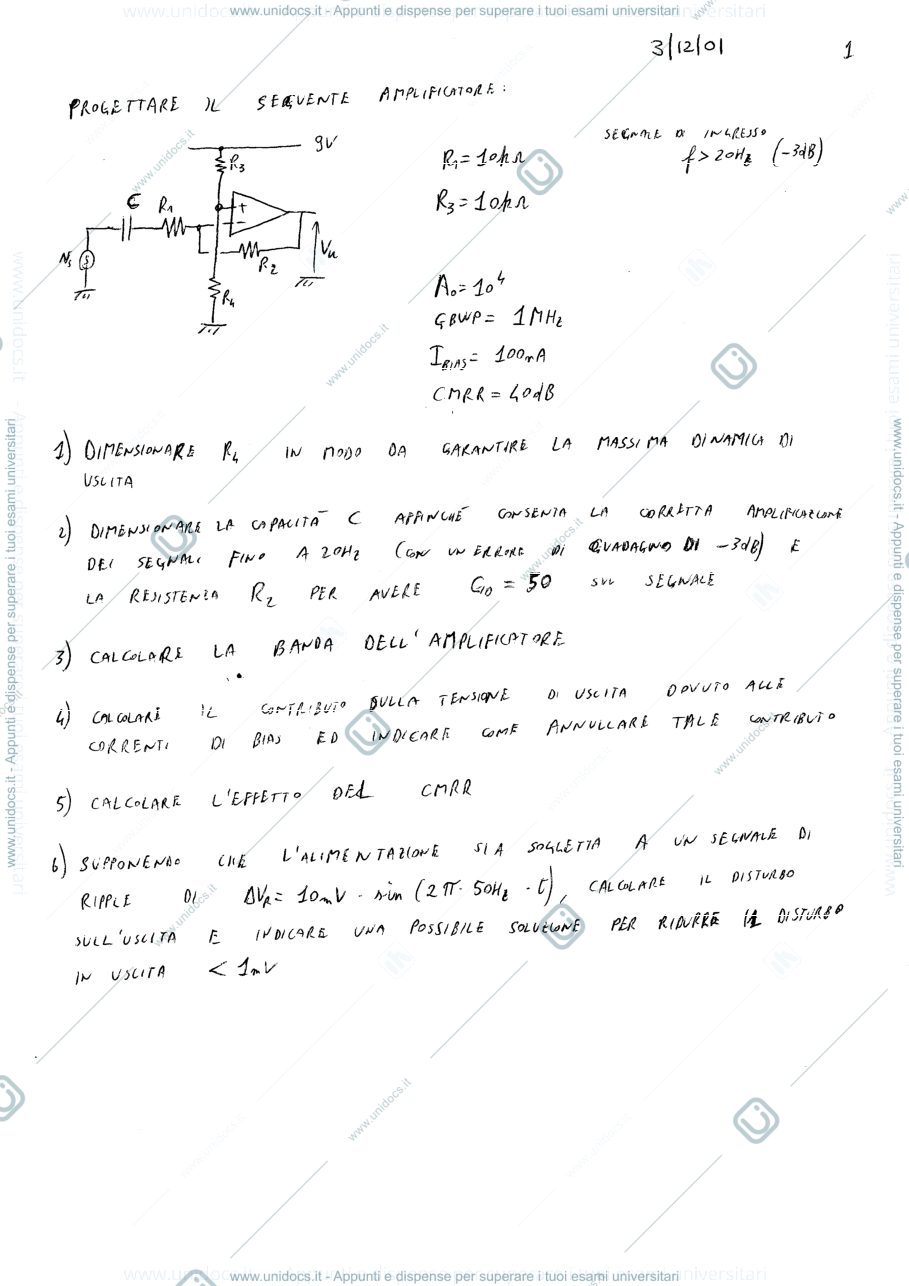 www.unidocs.it - Appunti e dispense per superare i tuoi esami universitari
3/12/01 1
PROGETTARE IL SEGUENTE AMPLIFICATORE:
SEGNALE DI INGRESSO
f > 20Hz (-3dB)
9V
R3
C R1
R2
R4
Vu
R1 = 10kΩ
R3 = 10kΩ
A0 = 10^4
GBWP = 1MHz
IBIAS = 100nA
CMRR = 40dB
1) DIMENSIONARE R4 IN MODO DA GARANTIRE LA MASSIMA DINAMICA DI
USCITA
2) DIMENSIONARE LA CAPACITÀ C AFFINCHÉ CONSENTA LA CORRETTA AMPLIFICAZIONE
DEI SEGNALI FINO A 20Hz (CON UN ERRORE DI GUADAGNO DI -3dB) E
LA RESISTENZA R2 PER AVERE G10 = 50 SUL SEGNALE
3) CALCOLARE LA BANDA DELL'AMPLIFICATORE
4) CALCOLARE IL CONTRIBUTO SULLA TENSIONE DI USCITA DOVUTO ALLE
CORRENTI DI BIAS ED INDICARE COME ANNULLARE TALE CONTRIBUTO
5) CALCOLARE L'EFFETTO DEL CMRR
6) SUPPONENDO CHE L'ALIMENTAZIONE SIA SOGGETTA A UN SEGNALE DI
RIPPLE DI ΔVR = 10mV · sin (2π · 50Hz · t), CALCOLARE IL DISTURBO
SULL'USCITA E INDICARE UNA POSSIBILE SOLUZIONE PER RIDURRE IL DISTURBO
IN USCITA < 1mV
www.unidocs.it - Appunti e dispense per superare i tuoi esami universitari
www.unidocs.it - Appunti e dispense per superare i tuoi esami universitari
www.unidocs.it - Appunti e dispense per superare i tuoi esami universitari